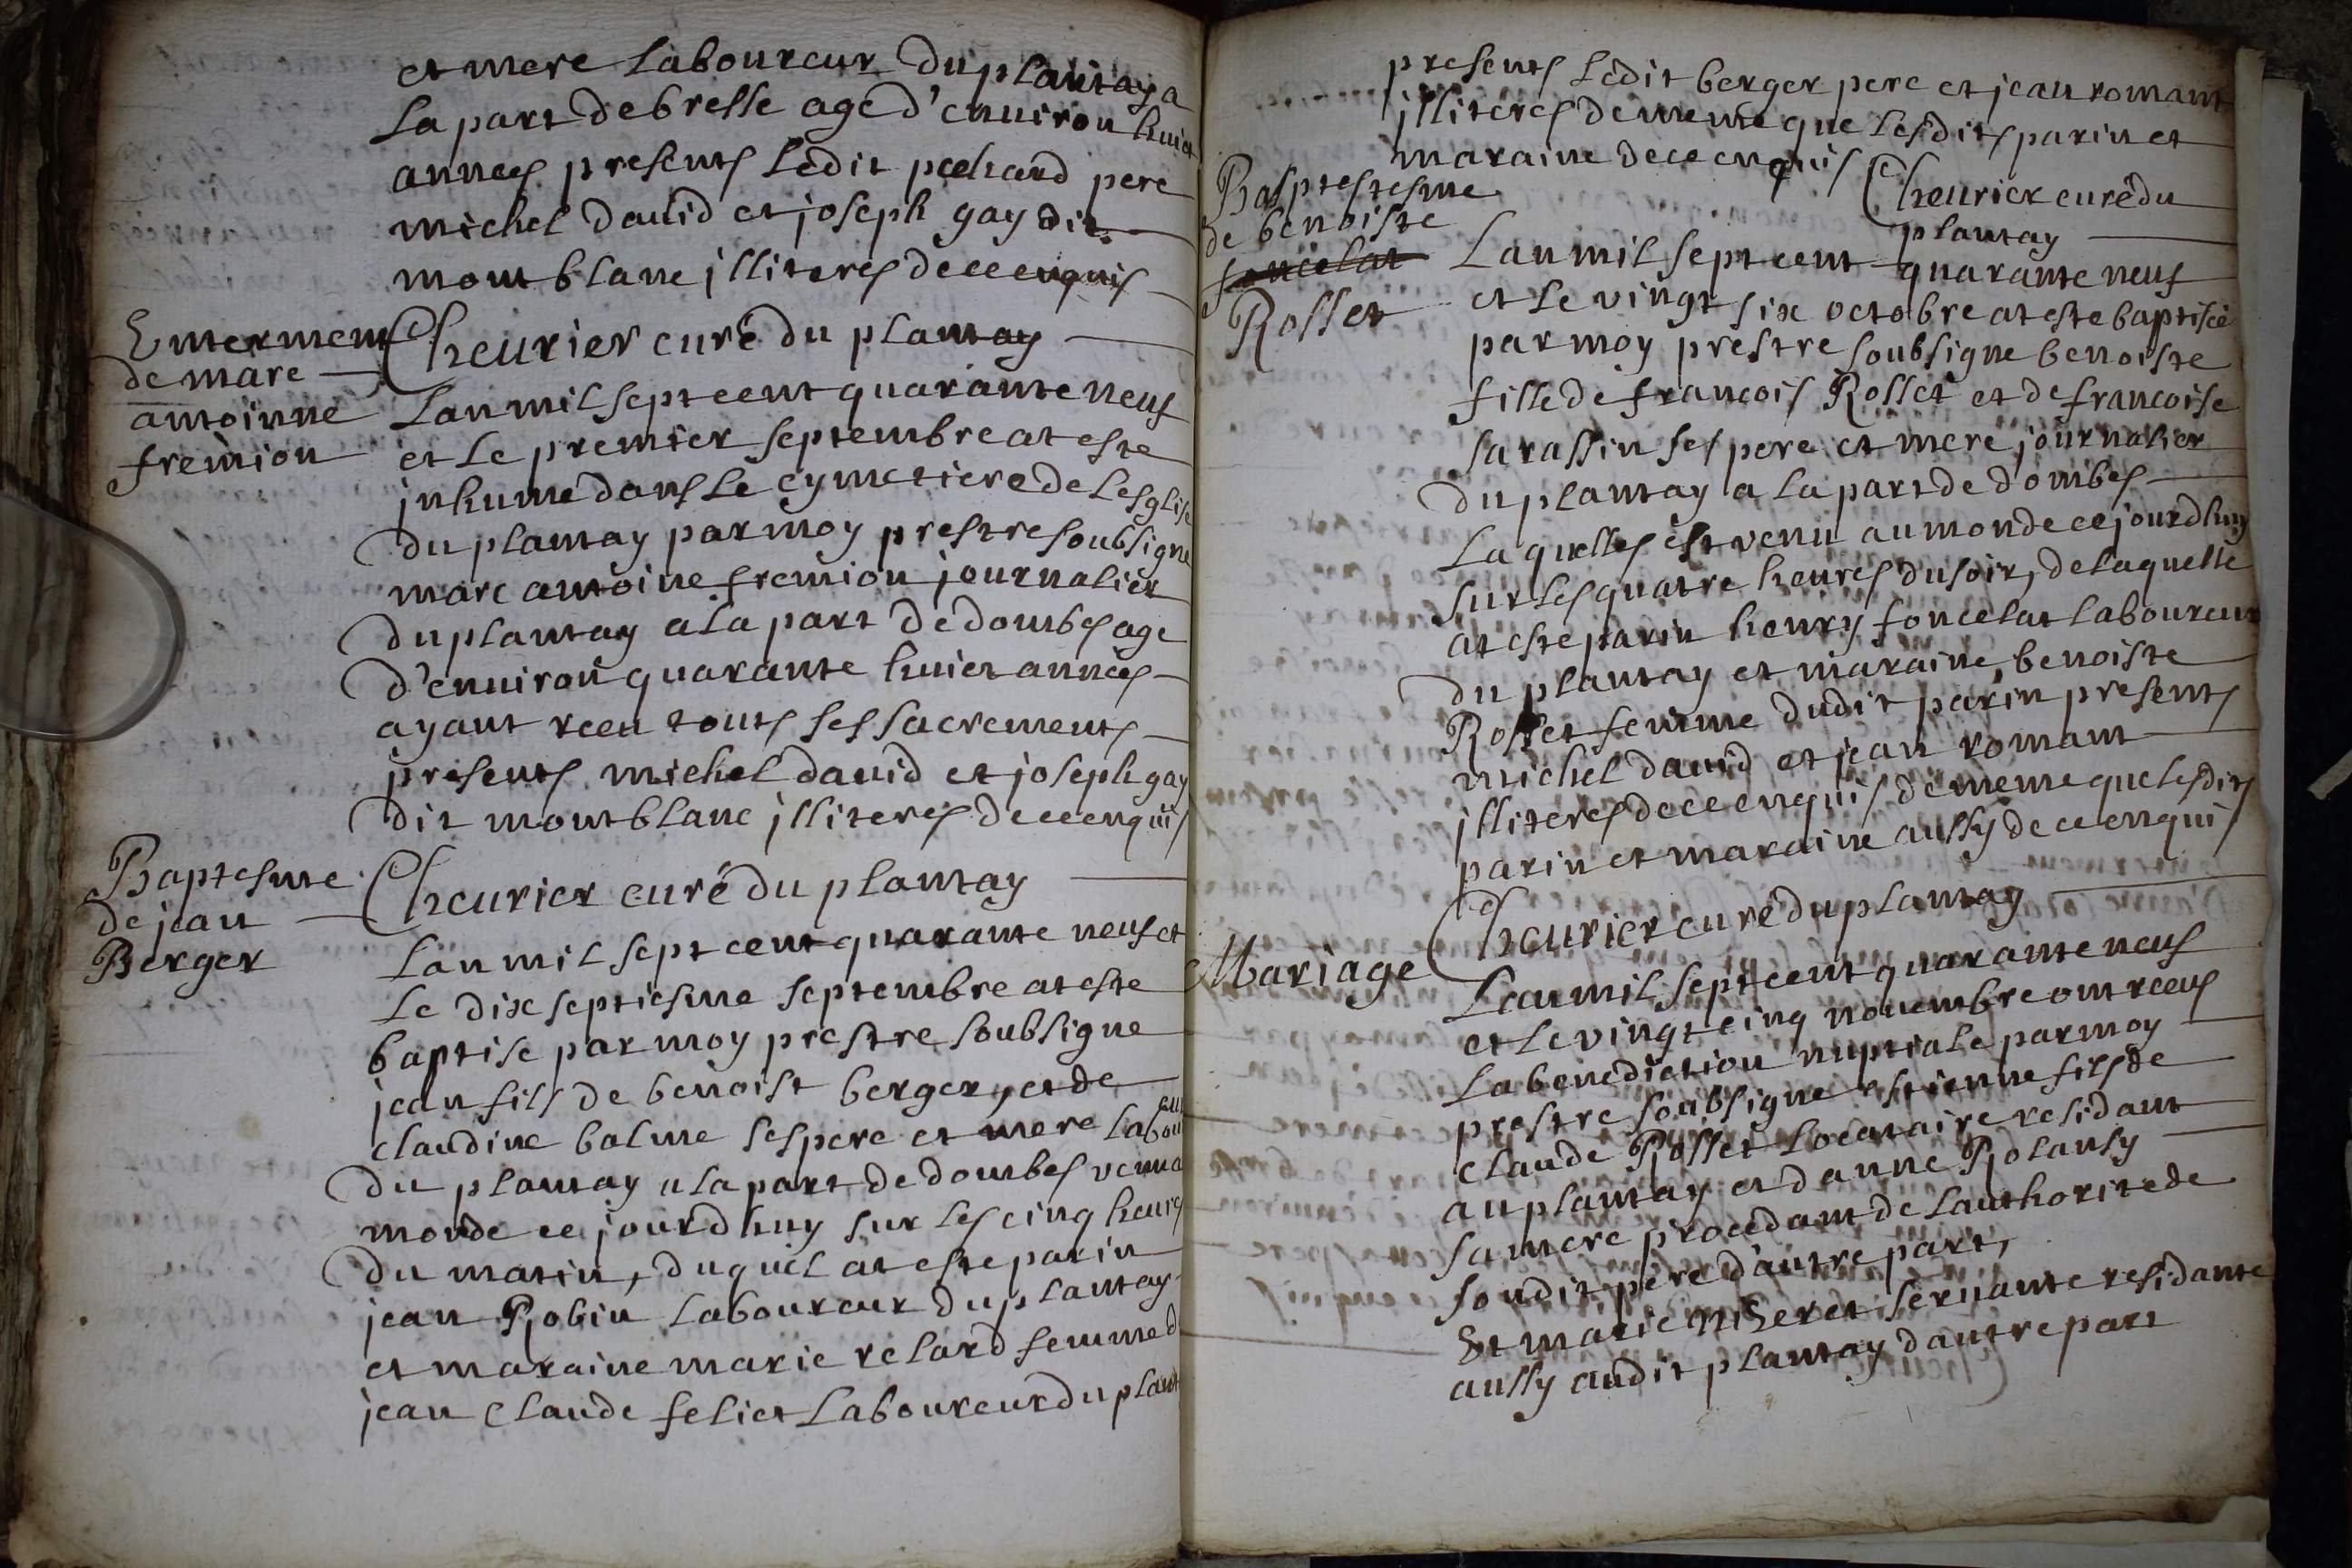 et mere Laboureur Du plantay a
La part de bresse age d'enuiron huict
annees presents Ledit pochard pere
michel dauid et joseph gay dit
mont blanc jlliteres de ce enquis
Cheurier curé du plantay
Enterrement
de marc
antoinne
fremion
Lan mil sept cent quarante neuf
et Le premier septembre at este
jnhumé dans Le cymetiere de Lesglise
Du plantay par moy prestre soubsigne
marc antoine fremion journalier
Du plantay a la part de dombes age
D'enuiron quarante huict années
ayant rceu touts ses sacrements
presents michel dauid et joseph gay
Dit mont blanc jlliteres de ce enquis
Cheurier curé du plantay
Baptesme
de jean
Berger
Lan mil sept cent quarante neuf et
Le dix septiesme septembre at este
baptisé par moy prestre soubsigne
jean fils de benoist berger, et de
claudine balme ses pere et mere Laboureur
Du plantay a la part de dombes venu a
monde ce jourd huy sur Les cinq heures
Du matin, duquel at este parin
jean Robin Laboureur du plantay
et maraine marie relard femme d
jean claude feliet Laboureur du plant
presents Ledit berger pere et jean romant
jlliteres de meme que Lesdits parin et
maraine de ce enquis
Cheurier curé du
plantay
Baptestesme
de benoiste
foncelat
Rosset
Lan mil sept cent quarante neuf
et Le vingt six octobre at este baptisée
par moy prestre soubsigne benoiste
fille de francois Rosset et de francoise
sarassin ses pere et mere journalier
du plantay a la part de dombes
Laquelles est venu au monde ce jourdhuy
sur Les quatre heures du soir, de laquelle
at este parin henry foncelat Laboureur
du plantay et maraine benoiste
Rosset femme dudit parin presents
michel dauid et jean romant
jlliteres de ce enquis de meme que Lesdits
parin et maraine aussy de ce enquis
Cheurier curé du plantay
Mariage
Lan mil sept cent quarante neuf
et Le vingt cinq nouembre ont rceus
La benediction nuptiale par moy
prestre soubsigne estienne fils de
claude Rosset Locataire residant
au plantay et d anne Rolansy
sa mere procedant de Lauthorite de
sondit pere d'autre part,
Et marie niseret seruante residante
aussy audit plantay d autre part